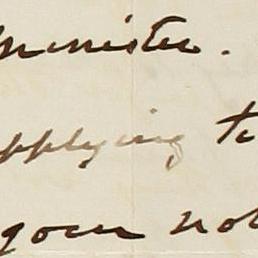 minister.
pplying t
your not